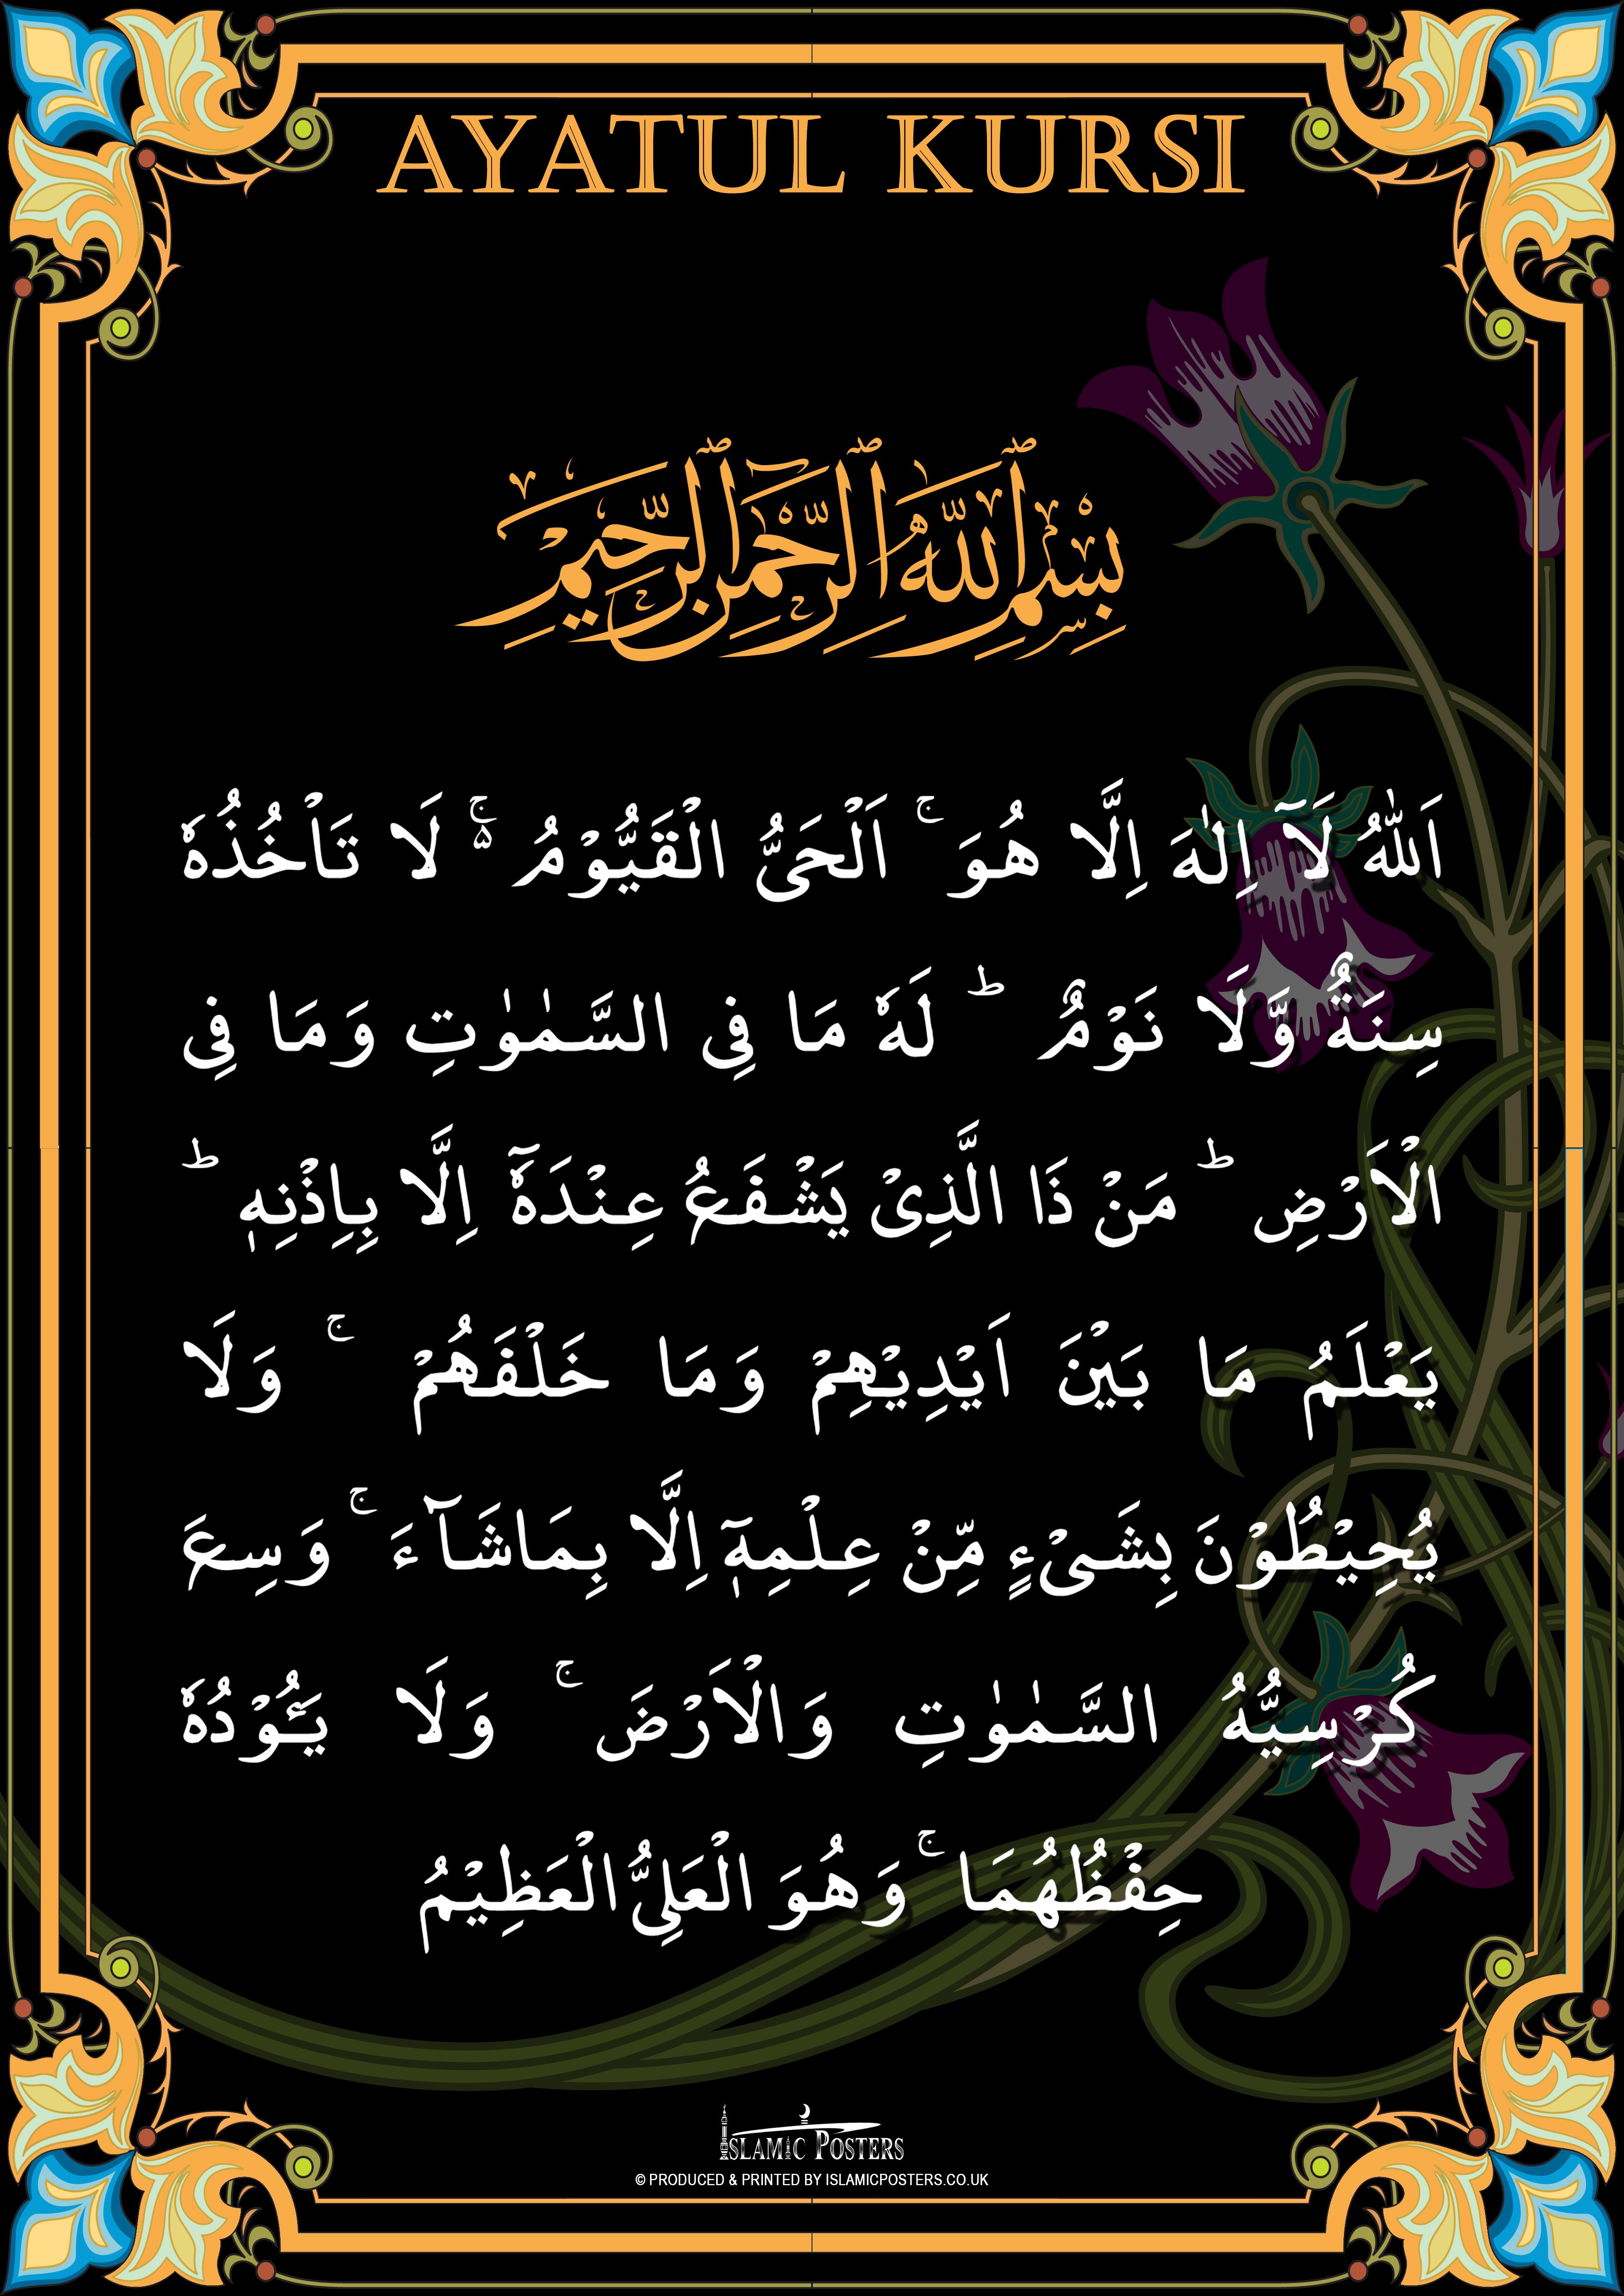 AYATUL KURSI
بِسْمِ ٱللَّهِ ٱلرَّحْمَٰنِ ٱلرَّحِيمِ
اَللّٰهُ لَآ اِلٰهَ اِلَّا هُوَ ۚ اَلْحَىُّ الْقَيُّوْمُ ۚ۬ لَا تَاْخُذُهٗ
سِنَةٌ وَّلَا نَوْمٌ ؕ لَهٗ مَا فِى السَّمٰوٰتِ وَمَا فِى
الْاَرْضِ ؕ مَنْ ذَا الَّذِىْ يَشْفَعُ عِنْدَهٗٓ اِلَّا بِاِذْنِهٖ ؕ
يَعْلَمُ مَا بَيْنَ اَيْدِيْهِمْ وَمَا خَلْفَهُمْ ۚ وَلَا
يُحِيْطُوْنَ بِشَىْءٍ مِّنْ عِلْمِهٖٓ اِلَّا بِمَاشَآءَ ۚ وَسِعَ
كُرْسِيُّهُ السَّمٰوٰتِ وَالْاَرْضَ ۚ وَلَا يَـُٔوْدُهٗ
حِفْظُهُمَا ۚ وَهُوَ الْعَلِىُّ الْعَظِيْمُ
ISLAMIC POSTERS
© PRODUCED & PRINTED BY ISLAMICPOSTERS.CO.UK